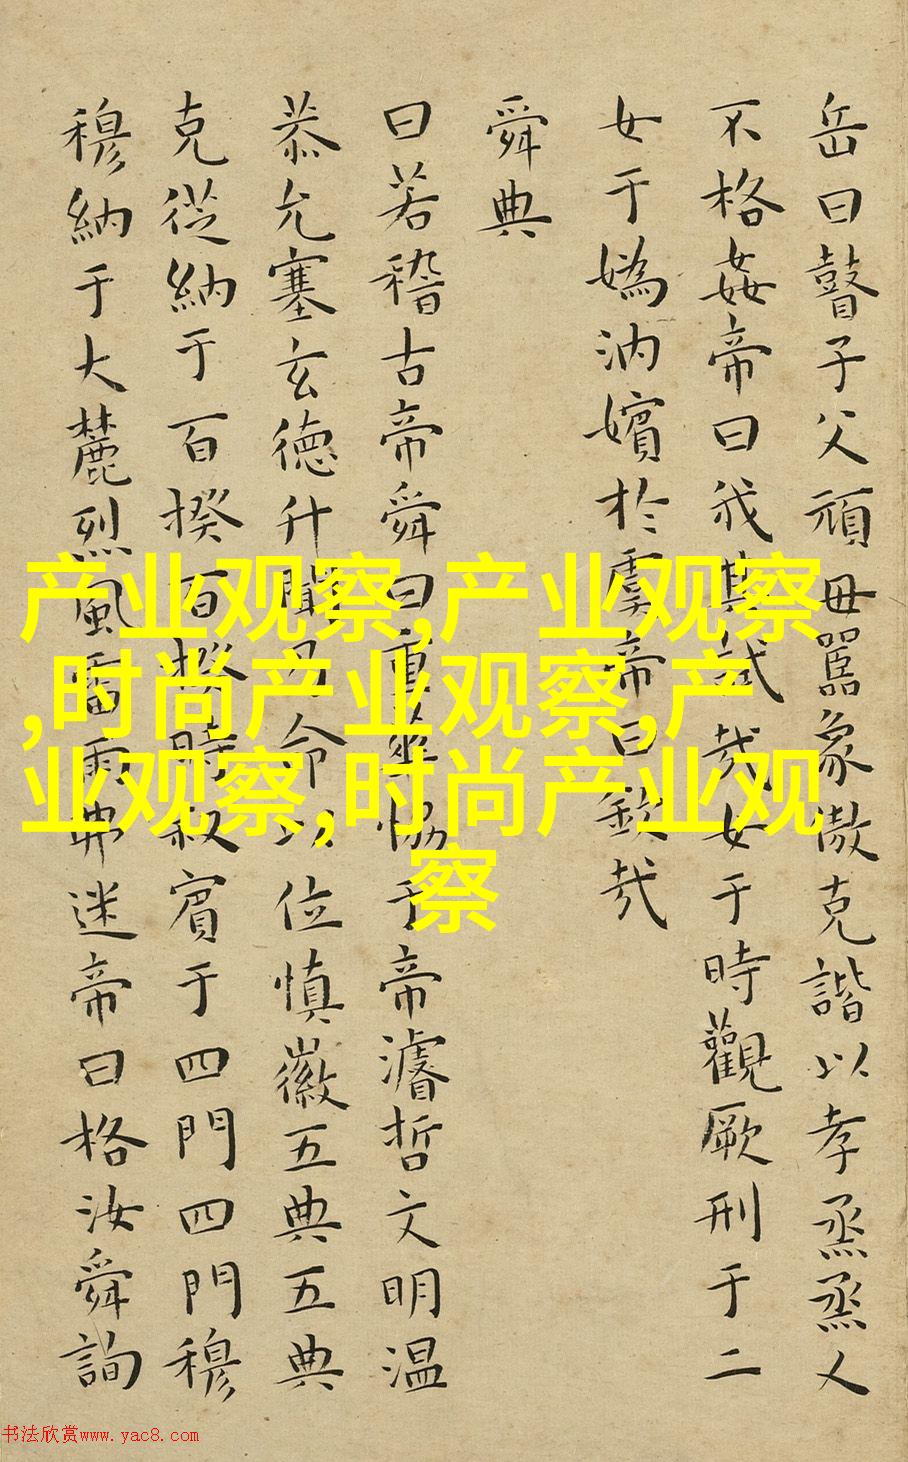 岳曰瞽子父頑毋嚚象傲克諧以孝烝烝乂
不格姦帝曰我其試哉女于時觀厥刑于二
女于嬀汭嬪於虞帝曰欽哉
舜典
曰若稽古帝舜曰重華協于帝濬哲文明温
恭允塞玄德升聞乃命以位慎徽五典五典
克從納于百揆百揆時叙賓于四門四門穆
穆納于大麓烈風雷雨弗迷帝曰格汝舜詢
产业观察,产业观察
,时尚产业观察,产
业观察,时尚产业观
察
书法欣赏www.yac8.com